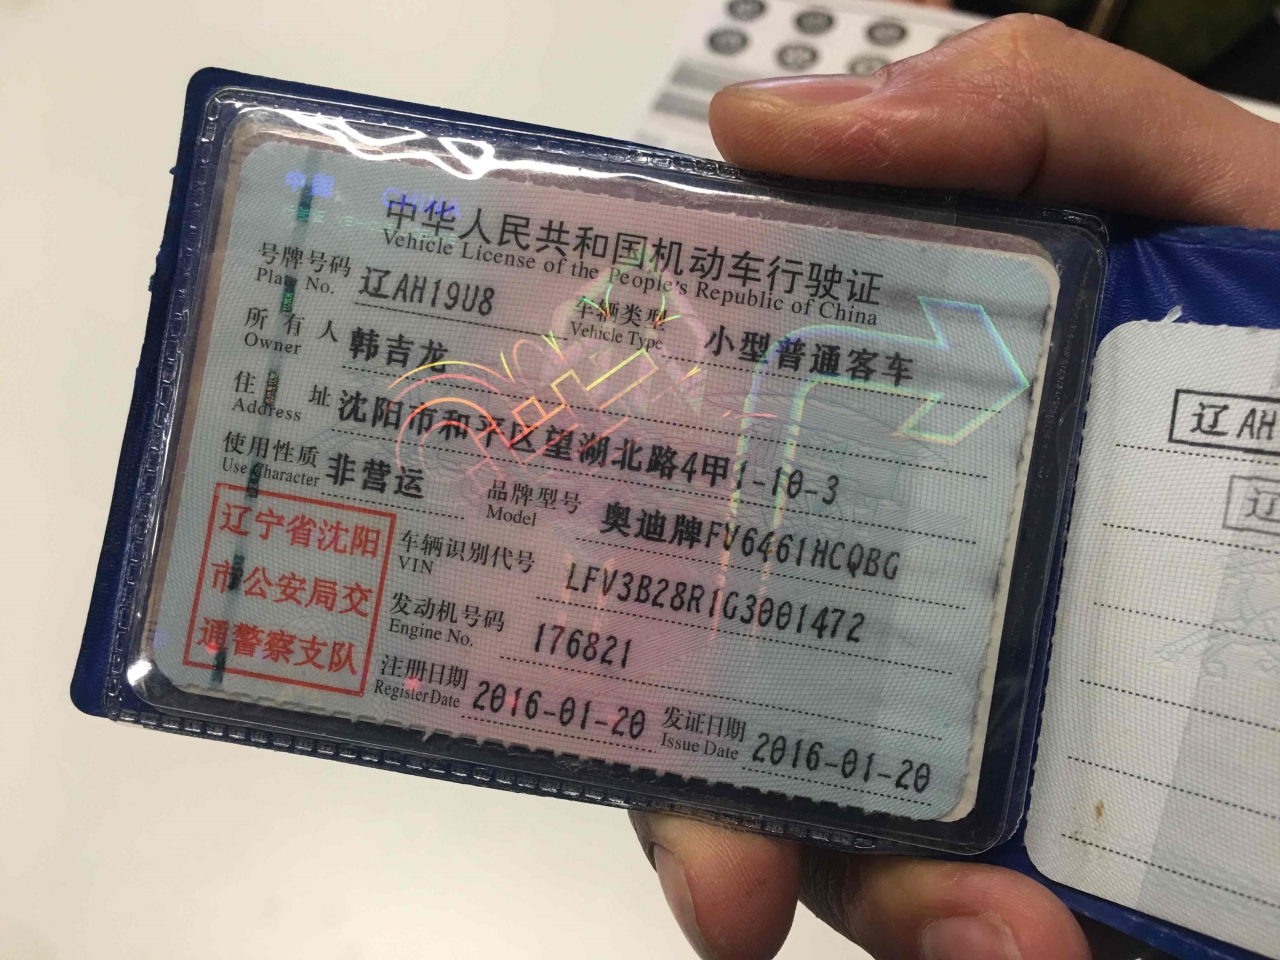 中国 CHINA
中华人民共和国机动车行驶证
Vehicle License of the People's Republic of China
号牌号码 辽AH19U8 车辆类型 小型普通客车
Plate No. Vehicle Type
所有人 韩吉龙
Owner
住址 沈阳市和平区望湖北路4甲1-10-3
Address
使用性质 非营运 品牌型号 奥迪牌FV6461HCQBG
Use Character Model
辽宁省沈阳
市公安局交
通警察支队
车辆识别代号 LFV3B28R1G3001472
VIN
发动机号码 176821
Engine No.
注册日期 2016-01-20 发证日期 2016-01-20
Register Date Issue Date
辽AH
辽